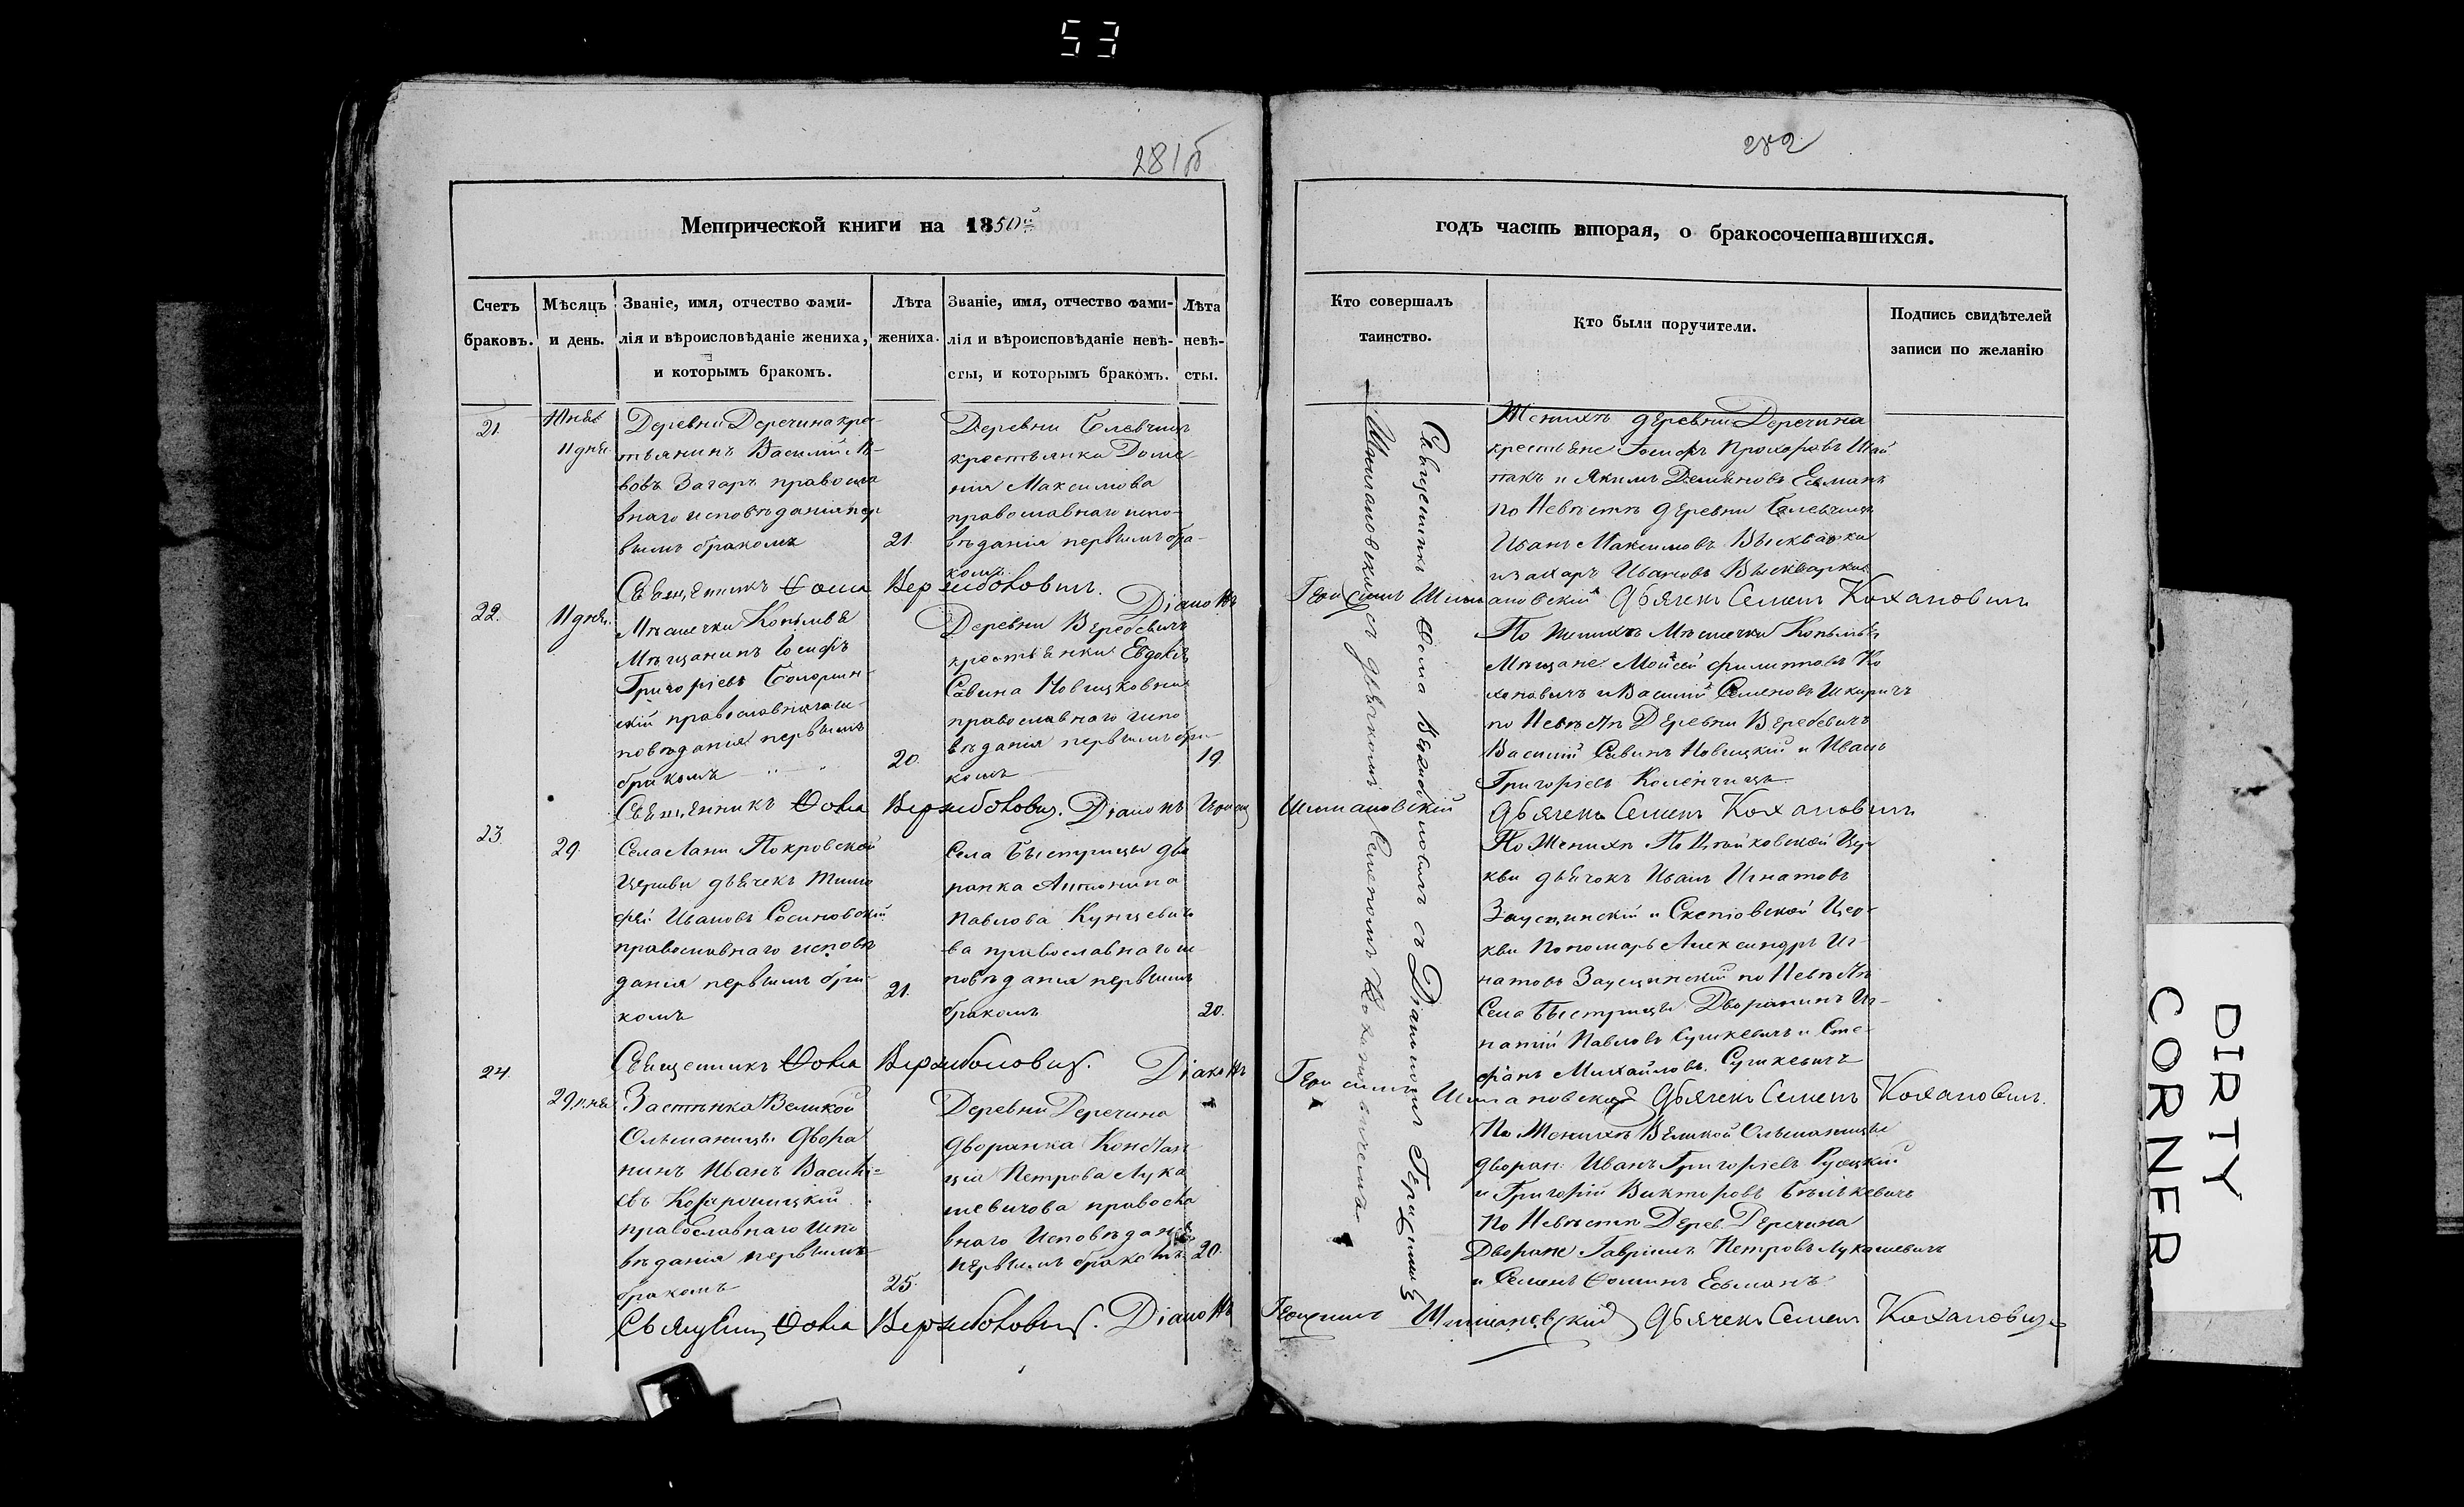 53
281б
Метрической книги на 1850й
Счетъ браковъ.
Мѣсяцъ и день.
Званіе, имя, отчество фами-
лія и вѣроисповѣданіе жениха,
и которымъ бракомъ.
Лѣта
жениха.
Званіе, имя, отчество фами-
лія и вѣроисповѣданіе невѣ-
сты, и которымъ бракомъ.
Лѣта
невѣ-
сты.
21.
11 дня
Деревни Деречина кре-
стьянинъ Василій
Загаръ правосла
внаго исповѣданія пер
вымъ бракомъ
21.
Деревни
крестьянка Доме
нія Максимова
православнаго испо-
вѣданія первымъ бра-
комъ
Священникъ Ѳома Вержболовичъ. Діаконъ
22.
11 дня
Мѣстечка Копыля
Мѣщанинъ Іосифъ
Григорьевъ
скій православнаго ис-
повѣданія первымъ
бракомъ
20.
Деревни Веребевичъ
крестьянка Евдокія
Савина Новицковна
православнаго испо
вѣданія первымъ бра-
комъ
19.
Священникъ Ѳома Вержболовичъ. Діаконъ
23.
29.
Села Лани Покровской
Церкви дьячекъ Тимо
фей Ивановъ Сосиновскій
православнаго исповѣ
данія первымъ бра-
комъ
21.
Села Быстрицы дво
рянка Антонина
Павлова
ва православнаго ис
повѣданія первымъ
бракомъ
20.
Священникъ Ѳома Вержболовичъ. Діаконъ
24.
29 дня
Застѣнка Великой
Ольшаницы Дворя
нинъ Иванъ Василь=
евъ
православнаго испо
вѣданія первымъ
бракомъ
25.
Деревни Деречина
дворянка Констан
ція Петрова Лука
шевичова правосла
внаго Исповѣданія
первымъ бракомъ
20.
Ѳома Вержболовичъ. Діаконъ
282
годъ часть вторая, о бракосочетавшихся.
Кто совершалъ
таинство.
Кто были поручители.
Подпись свидѣтелей
записи по желанію
Священникъ Ѳома Вержболовичъ съ Діакономъ Герасимомъ
Шимановскимъ и съ дьячкомъ Семеномъ Кохановичемъ
Женихѣ деревни Деречина
крестьяне Іосифъ Прохоровъ
и Якимъ Демьяновъ Есьманъ
по Невѣстѣ деревни
Иванъ Максимовъ
и Захаръ Ивановъ
Герасимъ Шимановскій Дьячекъ Семенъ Кохановичъ
По Женихѣ Мѣстечка Копыля
Мѣщане Мойсей Филиповъ Ко
хановичъ и Василій Семеновъ
по Невѣстѣ Деревни Веребевичъ
Василій Савинъ Новицкій и Иванъ
Григорьевъ
Шимановскій Дьячекъ Семенъ Кохановичъ
По Женихѣ
кви дьячокъ Иванъ Игнатовъ
Заусцинскій и Скеповской Цер-
кви Пономарь Александръ Иг-
натовъ Заусцинскій по Невѣстѣ
Села Быстрицы Дворянинъ Иг-
натій Павловъ Сушкевичъ и Сте-
фанъ Михайловъ Сушкевичъ
Герасимъ Шимановскій Дьячекъ Семенъ Кохановичъ.
По Женихѣ Великой Ольшаницы
дворян: Иванъ Григорьевъ Русецкій
и Григорій Викторовъ
По Невѣстѣ Дерев. Деречина
Дворяне Гавріилъ Петровъ Лукашевичъ
и Семенъ Ѳоминъ Есьманъ
Герасимъ Шимановскій Дьячекъ Семенъ Кохановичъ
DIRTY
CORNER